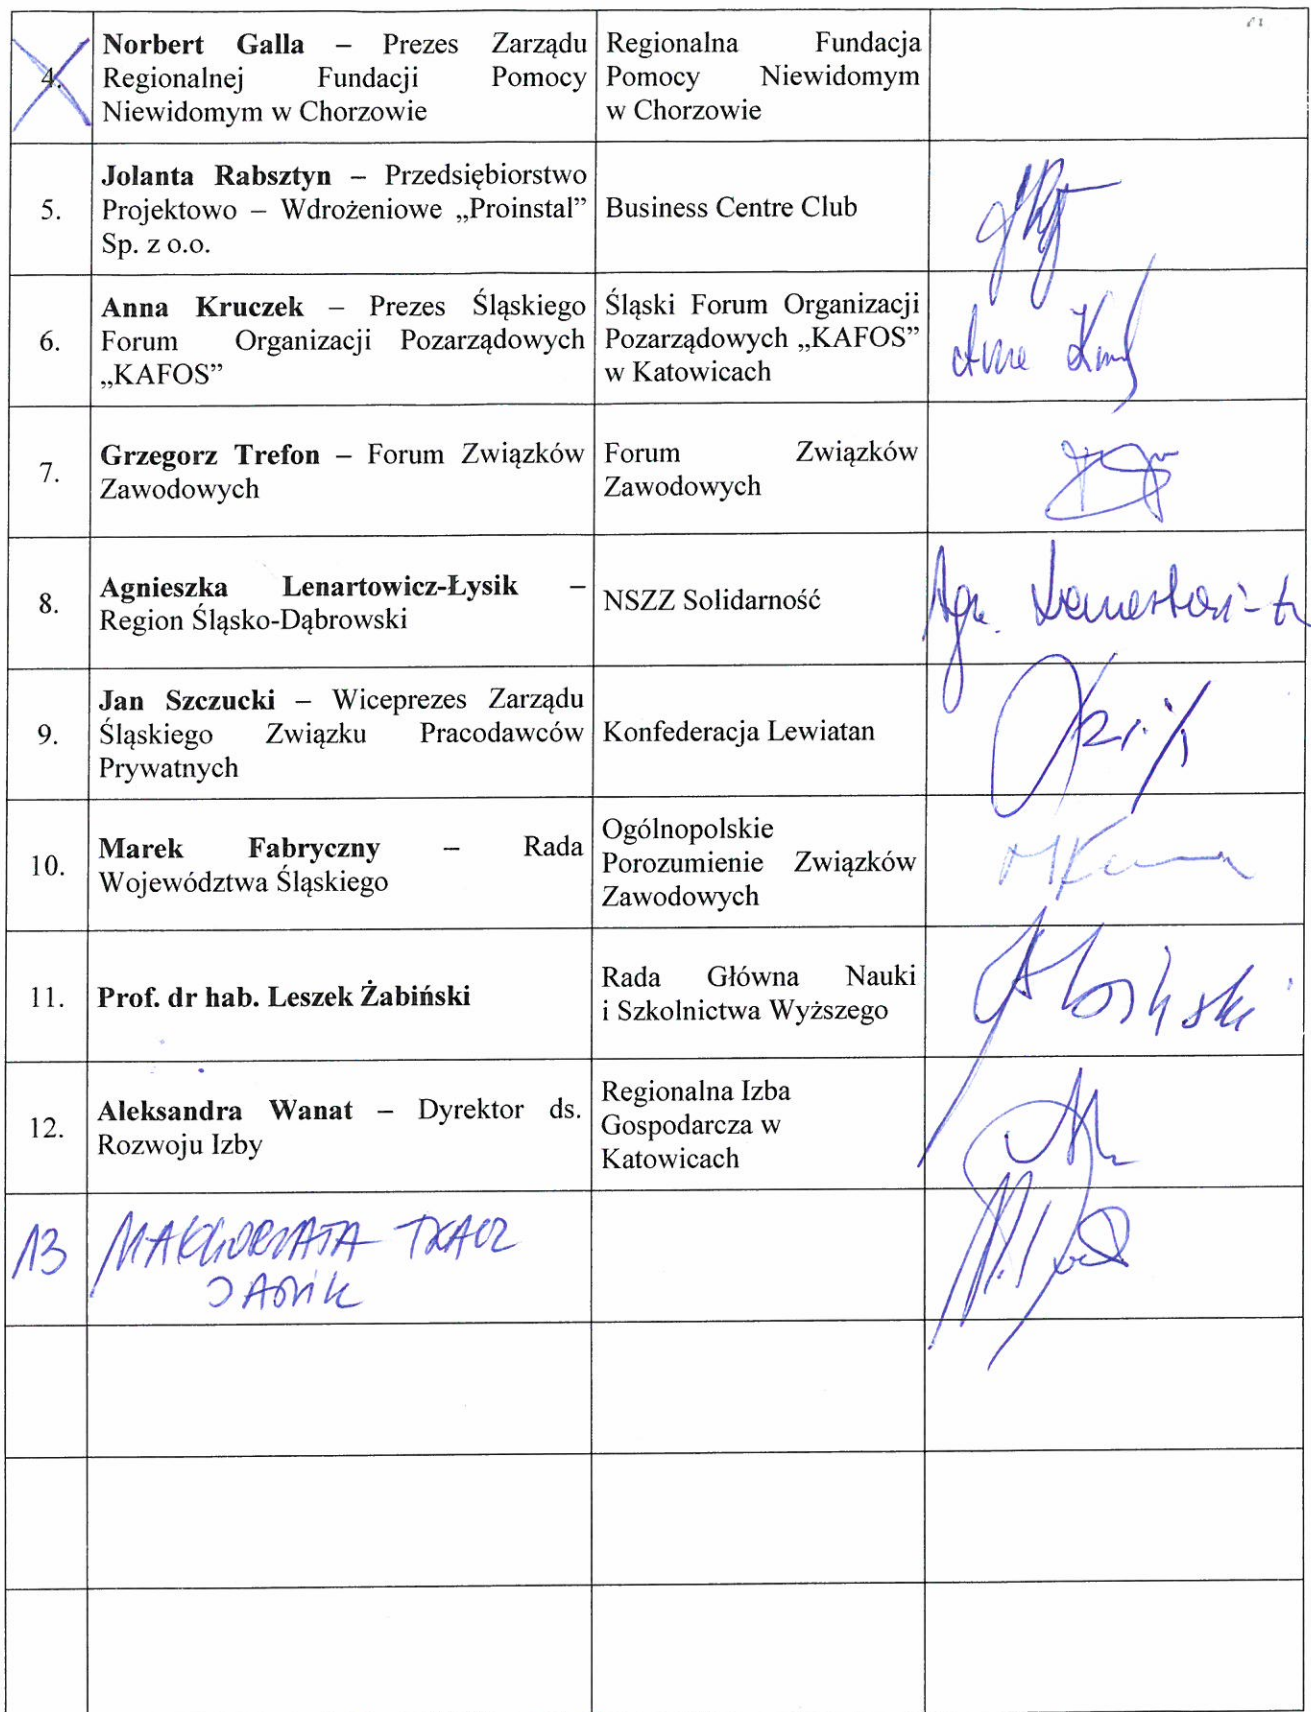 4.
Norbert Galla – Prezes Zarządu
Regionalnej Fundacji Pomocy
Niewidomym w Chorzowie
Regionalna Fundacja
Pomocy Niewidomym
w Chorzowie
5.
Jolanta Rabsztyn – Przedsiębiorstwo
Projektowo – Wdrożeniowe „Proinstal”
Sp. z o.o.
Business Centre Club
6.
Anna Kruczek – Prezes Śląskiego
Forum Organizacji Pozarządowych
„KAFOS”
Śląski Forum Organizacji
Pozarządowych „KAFOS”
w Katowicach
7.
Grzegorz Trefon – Forum Związków
Zawodowych
Forum Związków
Zawodowych
8.
Agnieszka Lenartowicz-Łysik –
Region Śląsko-Dąbrowski
NSZZ Solidarność
9.
Jan Szczucki – Wiceprezes Zarządu
Śląskiego Związku Pracodawców
Prywatnych
Konfederacja Lewiatan
10.
Marek Fabryczny – Rada
Województwa Śląskiego
Ogólnopolskie
Porozumienie Związków
Zawodowych
11.
Prof. dr hab. Leszek Żabiński
Rada Główna Nauki
i Szkolnictwa Wyższego
12.
Aleksandra Wanat – Dyrektor ds.
Rozwoju Izby
Regionalna Izba
Gospodarcza w
Katowicach
13
MAŁGORZATA TKACZ
JANIK